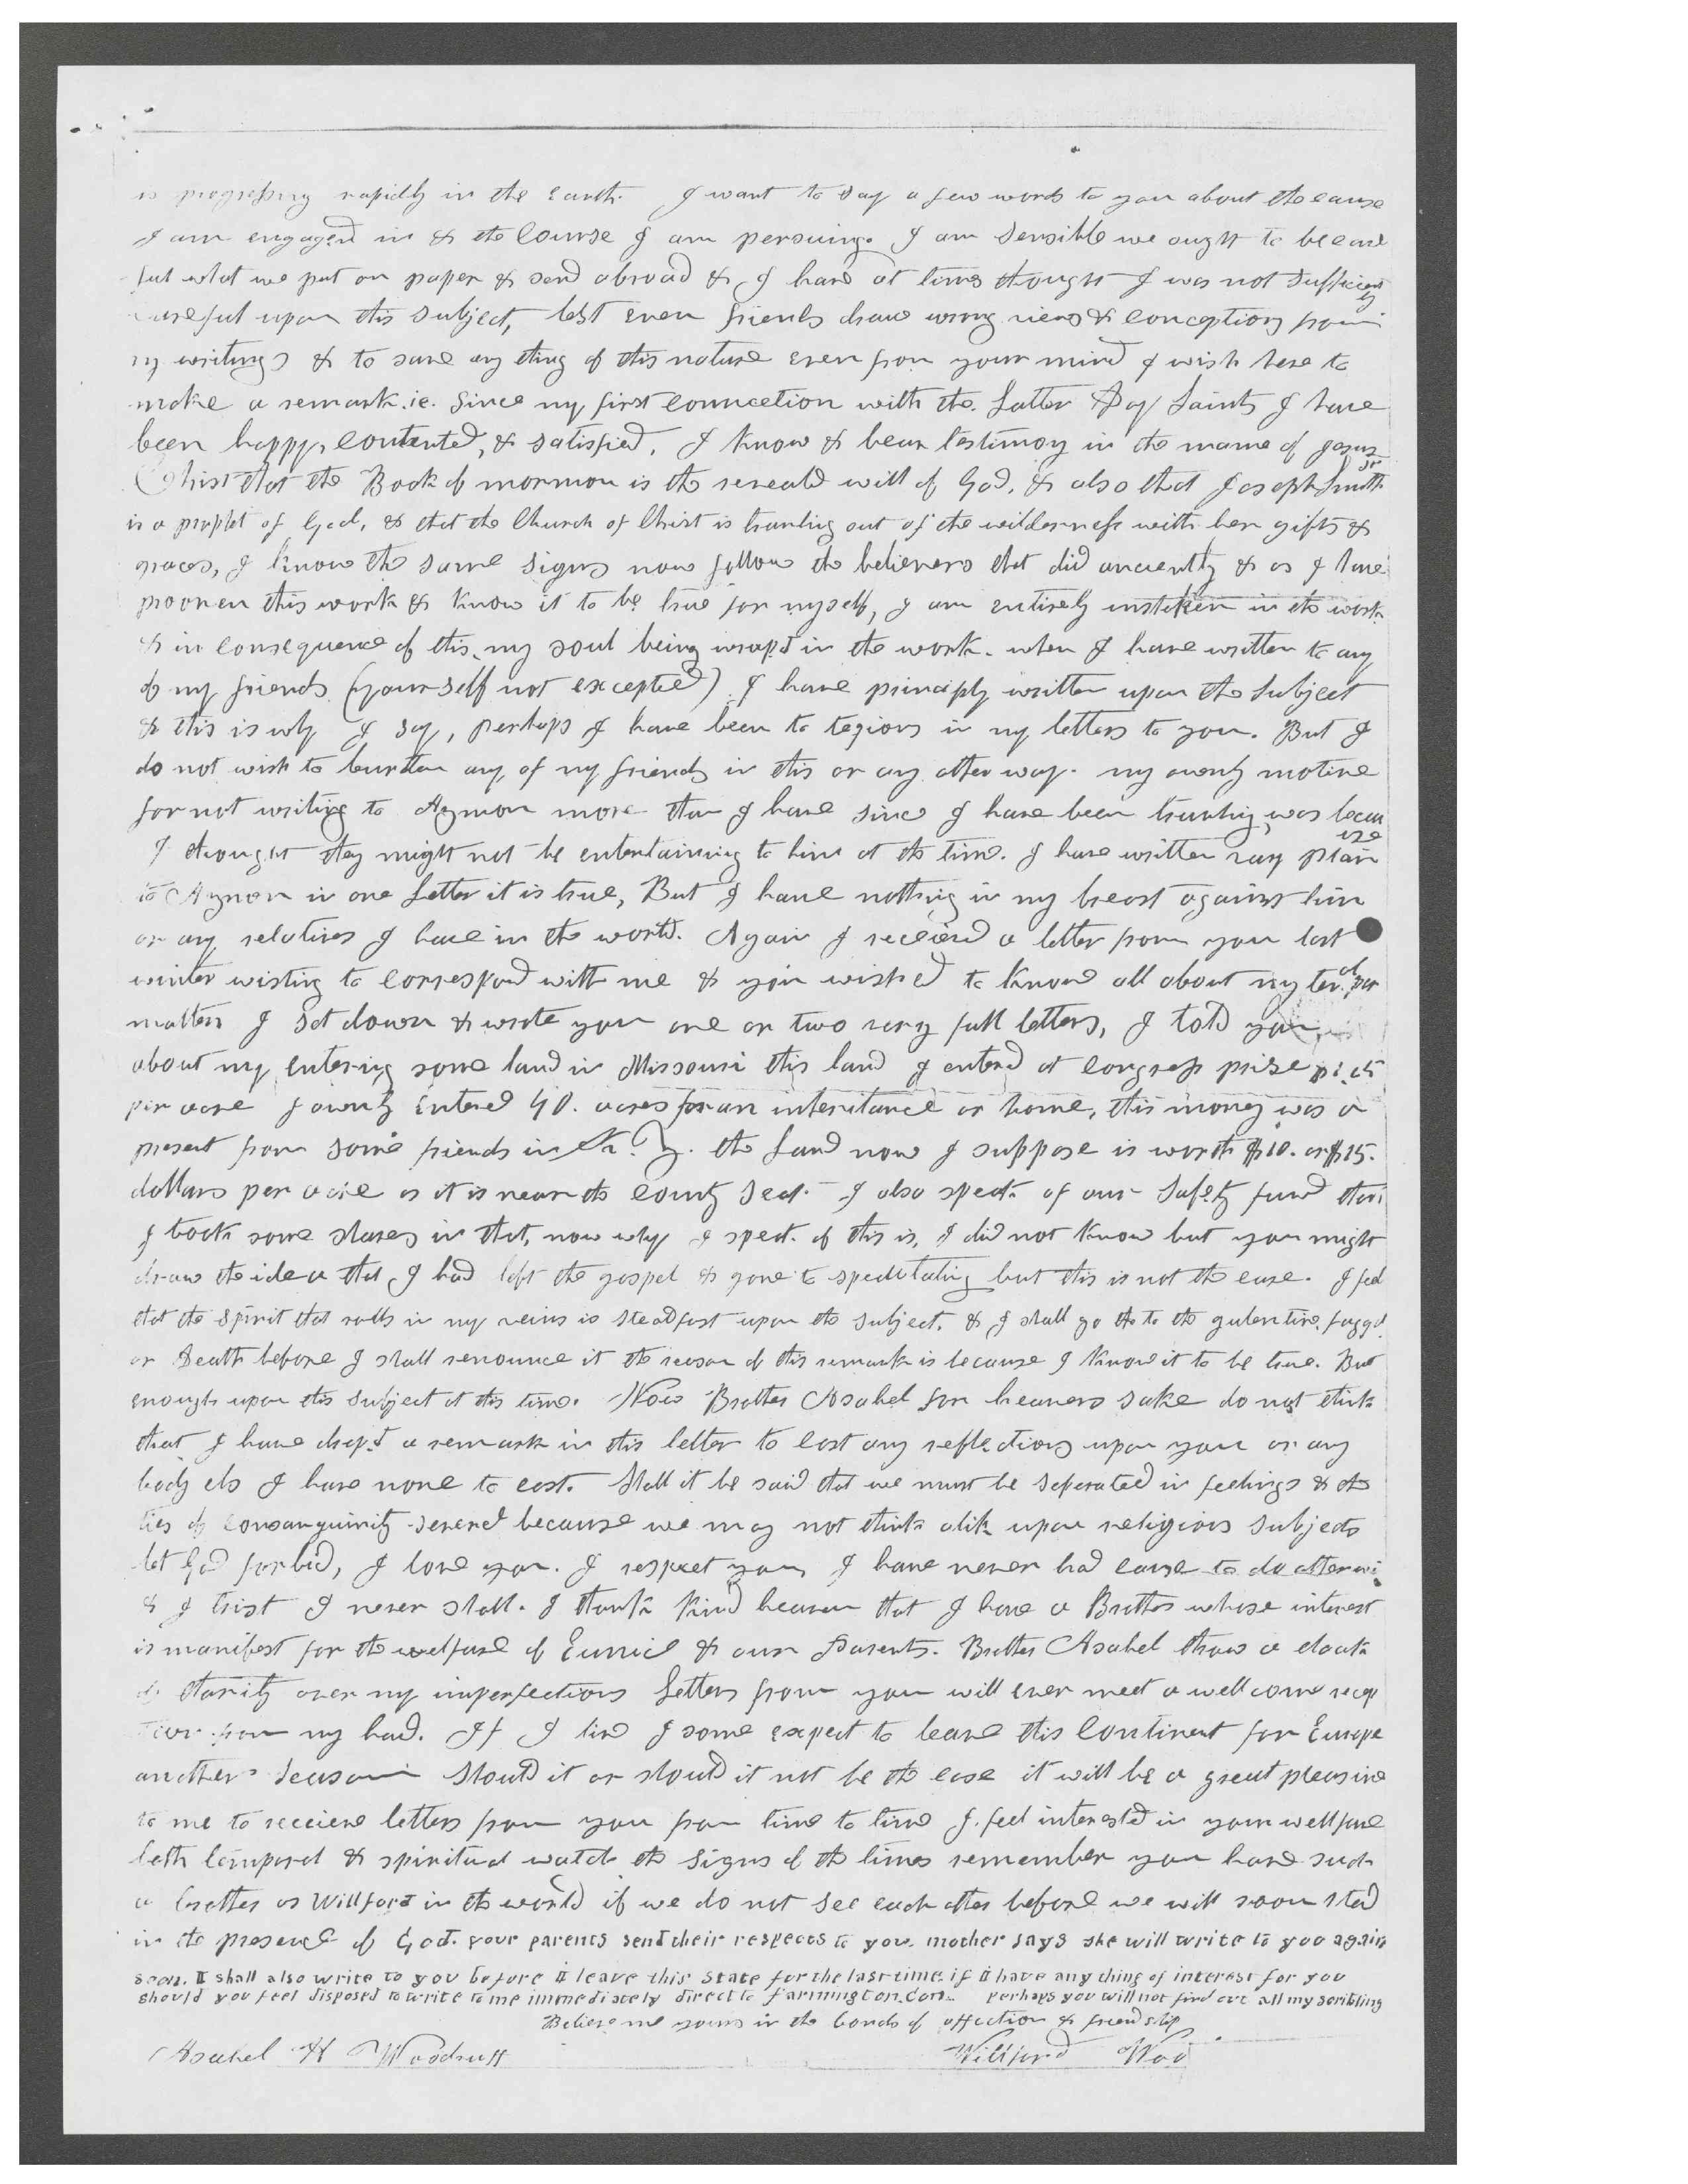 is progressing rapidly in the earth. I want to say a few words to you about the cause
I am engaged in & the Course I am persuing. I am Sensible we ought to be care
ful what we put on paper & send abroad & I have at times thought I was not sufficiently
careful upon this subject, lest even friends draw wrong views & conceptions from
my writings & to save any thing of this nature even from your mind I wish here to
make a remark. ie. Since my first Connection with the Latter Day Saints I have
been happy, contented, & satisfied. I know & bear testimony in the name of Jesus
Christ that the Book of mormon is the reveald will of God, & also that Joseph Smith Jr
is a prophet of God, & that the Church of Christ is traviling out of the wilderness with her gifts &
graces, I know the same signs now follow the believers that did anciently & as I have
prooven this work & know it to be true for myself, I am entirely in the work
& in consequence of this, my soul being wrap'd in the work. when I have written to any
of my friends (yourself not excepted) I have principly written upon the subject
& this is why I say, perhaps I have been to tegious in my letters to you. But I
do not wish to burthen any of my friends in this or any other way. my ownly motive
for not writing to Azmon more than I have since I have been traviling, was because
I thought they might not be entertaining to him at the time. I have written vary plain
to Azmon in one Letter it is true, But I have nothing in my breast against him
or any relatives I have in the world. Again I received a letter from you last
winter wishing to correspond with me & you wished to know all about my temperal
matters I set down & wrote you one or two very full letters, I told you
about my entering some land in Missouri this land I entered at congress prise
per acre I ownly entered 40. acres for an inheritance or home, this money was a
present from some friends in the land now I suppose is worth $10. or $15.
dollars per acre as it is near the county seat. I also speak of our Safety fund that
I took some shares in that, now why I speak of this is, I did not know but you might
draw the idea that I had left the gospel & gone to speculating but this is not the case. I feel
that the spirit that rolls in my veins is steadfast upon the subject. & I shall go to the gulentine, faggot
or Death before I shall renounce it the reason of this remark is because I know it to be true. But
enough upon this subject at this time. Now Brother Asahel for heavens sake do not think
that I have drop'd a remark in this letter to cast any reflections upon you or any
body els I have none to cast. Shall it be said that we must be seperated in feelings & the
ties of consanguinity severed because we may not think alik upon religious subjects
let God forbid, I love you. I respect you, I have never had cause to do otherwi
& I trust I never shall. I thank kind heaven that I have a Brother whose interest
is manifest for the welfare of Eunice & our Parents. Brother Asahel throw a cloak
of charity over my imperfections Letters from you will ever meet a wellcome recep
tion from my hand. If I live I some expect to leave this Continent for Europe
another season should it or should it not be the case it will be a great pleasure
to me to receieve letters from you from time to time I feel interested in your wellfare
both temporal & spiritual watch the signs of the times remember you have such
a brother as Willford in the world if we do not see each other before we will soon stand
in the presence of God. your parents send their respects to you. mother says she will write to you again
soon. I shall also write to you before I leave this state for the last time if I have any thing of interest for you
should you feel disposed to write to me immediately direct to Farmington. Con. Perhaps you will not find out all my scribling
Believe me yours in the bonds of affection & friendship
Asahel H Woodruff Willford Woo